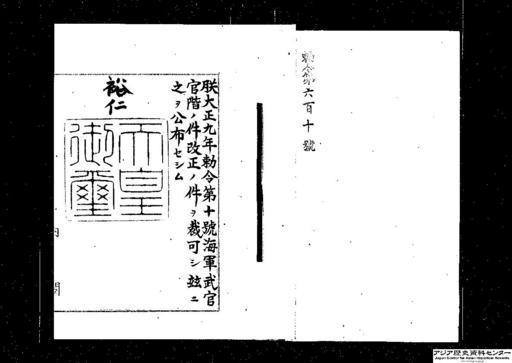 勅令第六百十號
朕大正九年勅令第十號海軍武官
官階ノ件改正ノ件ヲ裁可シ玆ニ
之ヲ公布セシム
裕仁
天皇
御璽
内閣
アジア歴史資料センター
Japan Center for Asian Historical Records